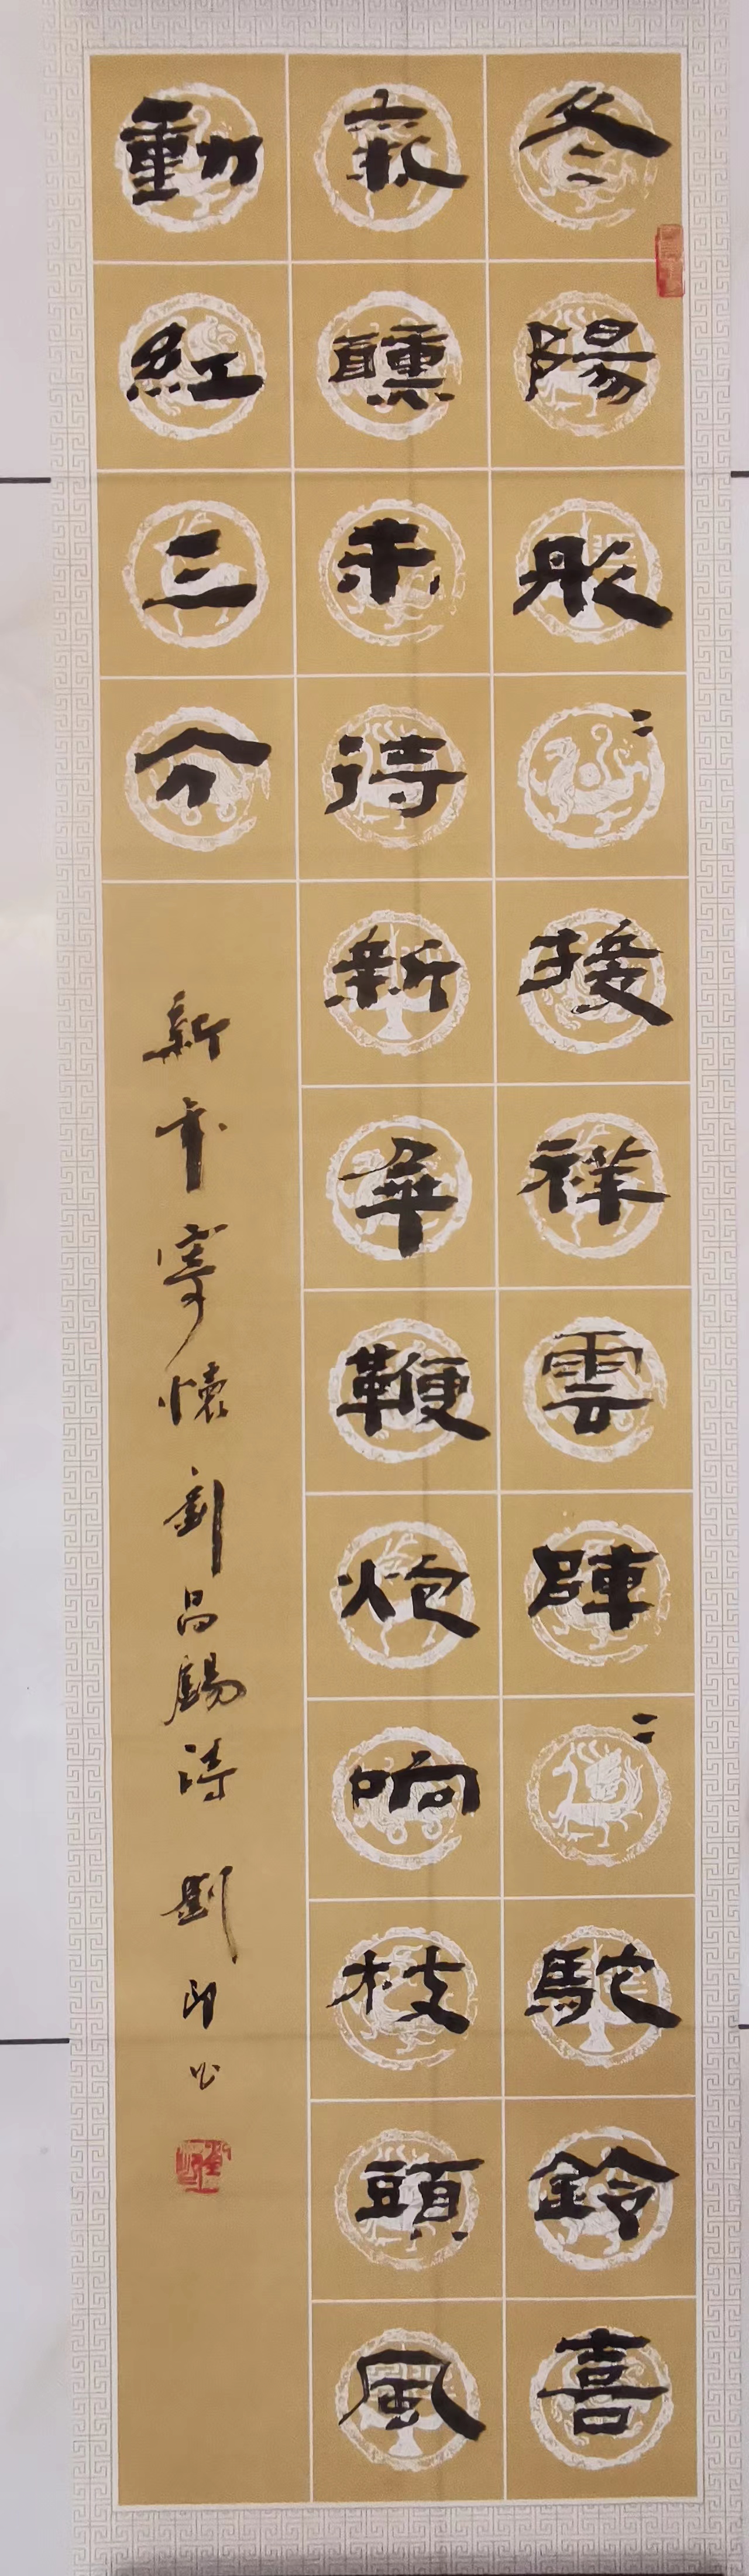 冬陽彤〻接祥雲陣〻駝鈴喜
醺未待新年鞭炮响枝頭風
動紅三分
新年寄懷劉昌錫詩劉印書